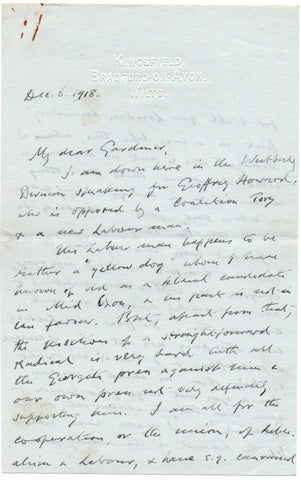 KINGSFIELD,
BRADFORD-ON-AVON,
WILTS.
Dec. 6. 1918.
My dear Gardiner,
I am down here in the Westbury
Division speaking for Geoffrey Howard
who is opposed by a Coalition Tory
& a new Labour man.
This Labour man happens to be
rather a "yellow dog" whom I have
known of old as a Liberal candidate
in Mid Oxon, & his past is not in
his favour. But, apart from that,
the position of a straightforward
Radical is very hard with all
the Georgite press against him &
our own press not very definitely
supporting him. I am all for the
co-operation, or the union, of Liber-
alism & Labour, & have e.g. canvassed